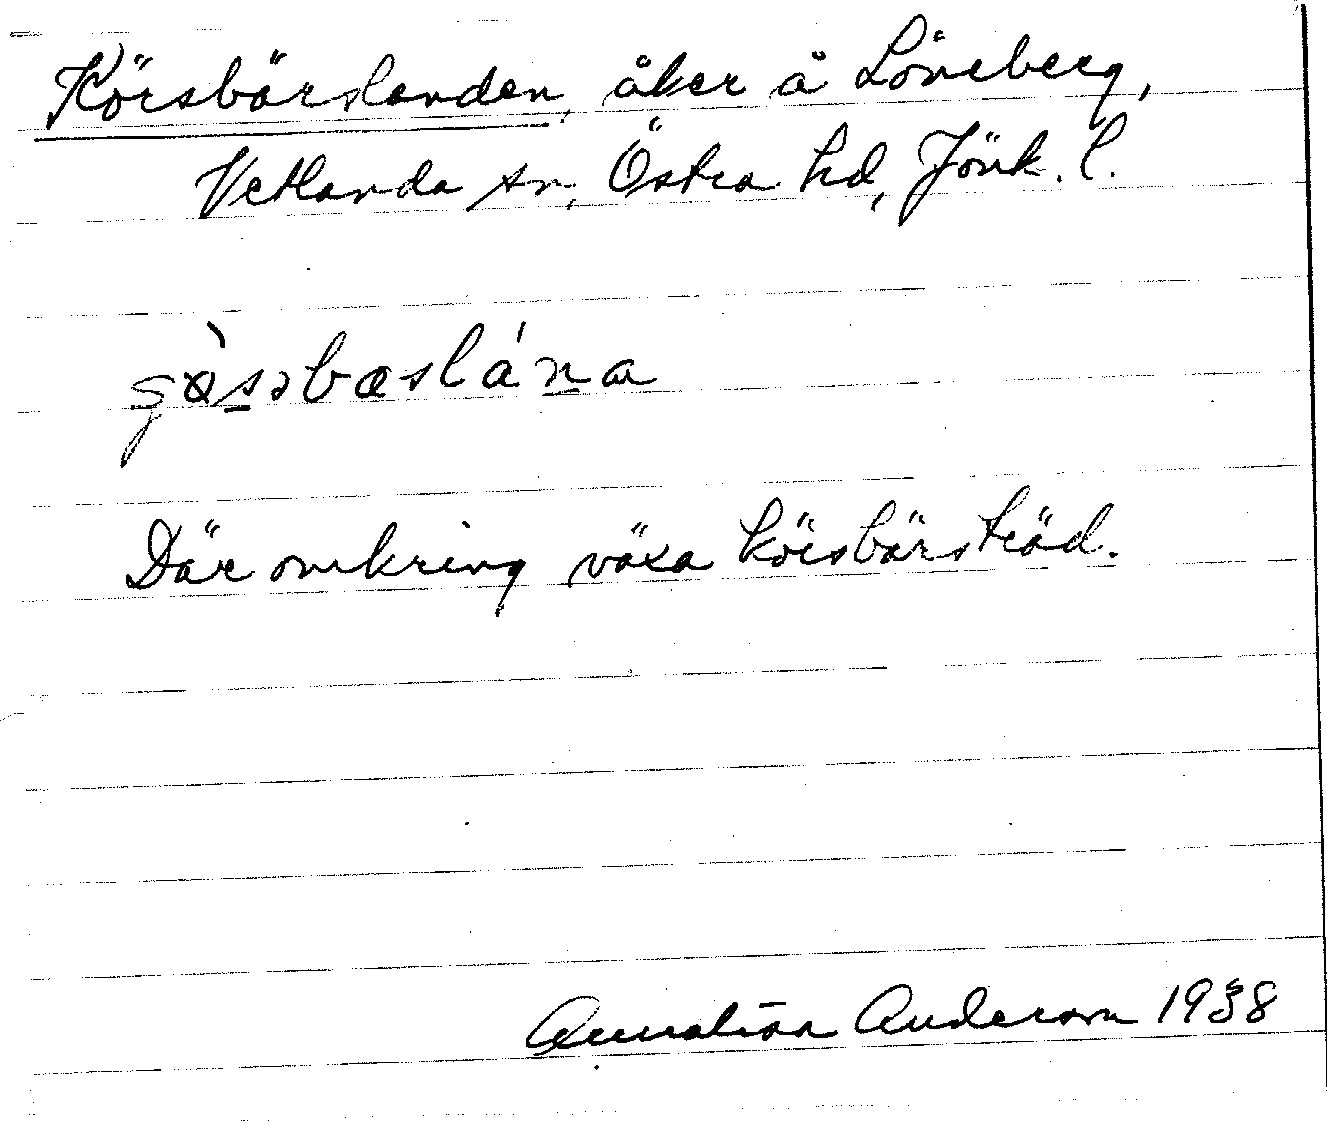 Körsbärslanden, åker å Löneberg,
Vetlanda sn, Östra hd, Jönk. l.
Där omkring växa körsbärsträd.
Anderson 1938